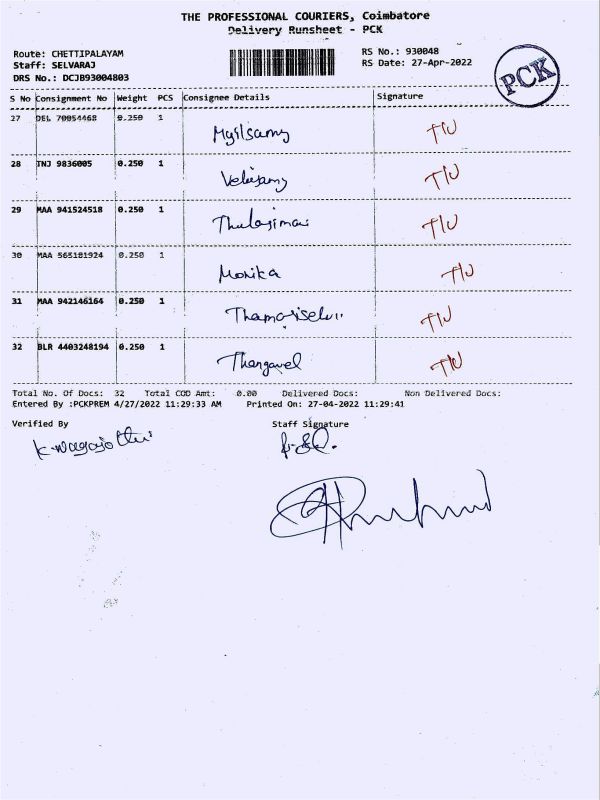 THE PROFESSIONAL COURIERS, Coimbatore
Delivery Runsheet - PCK
Route: CHETTIPALAYAM
Staff: SELVARAJ
DRS No.: DCJB93004803
RS No.: 930048
RS Date: 27-Apr-2022
PCK
S No Consignment No Weight PCS Consignee Details Signature
27 DEL 70054468 0.250 1 Mylsamy T/U
28 TNJ 9836005 0.250 1 Velusamy T/U
29 MAA 941524518 0.250 1 Thulasimani T/U
30 MAA 565101924 0.250 1 Monika T/U
31 MAA 942146164 0.250 1 T/U
32 BLR 4403248194 0.250 1 Thangavel T/U
Total No. Of Docs: 32 Total COD Amt: 0.00 Delivered Docs: Non Delivered Docs:
Entered By :PCKPREM 4/27/2022 11:29:33 AM Printed On: 27-04-2022 11:29:41
Verified By Staff Signature